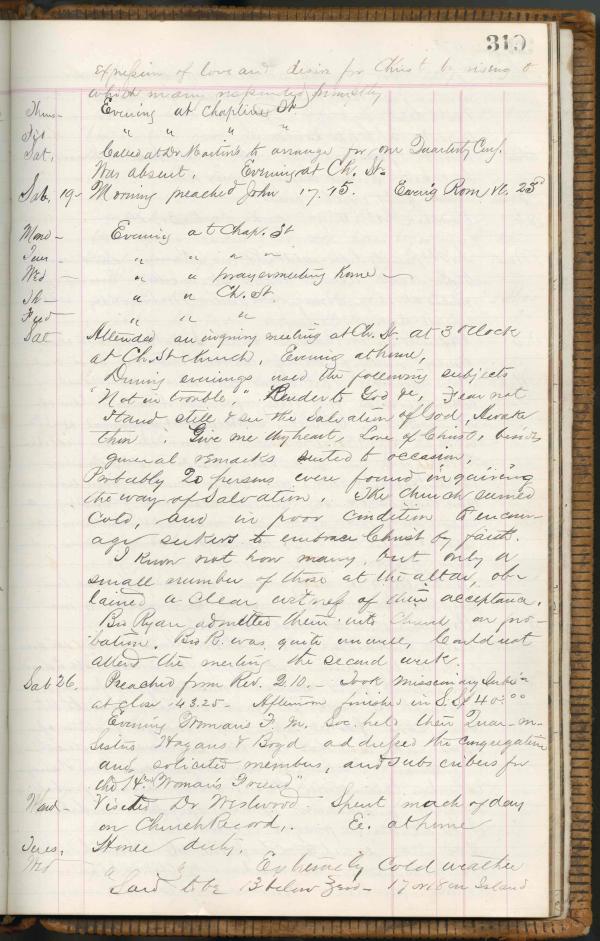 310
Expression of love and desire for Christ by rising to
which many responded
Thus- Evening at Chapline St
Fri " " " "
Sat, Called at Dr Martins to arrange for our Quarterly Conf.
Was absent. Evening at Ch. St-
Sab. 19- Morning preached John 17.15. Evenig Rom 23d
Mond- Evening at Chap. St
Tues- " " " "
Wed - " " prayermeeting home-
Th- " " Ch. St.
Fryd " " "
Sat Attended an inquiry meeting at Ch. St. at 3 oclock
at Ch. St church, Evening at home,
During evenings used the following subjects
"Not in trouble," Render to God &c, Fear not
Stand still & see the Salvation of God, Awake
thou. Give me thy heart, Love of Christ, besides
general remarks suited to occasion,
Probably 20 persons were found inquiring
the way of salvation. The Church seemed
Cold, and in poor condition to encour-
age seekers to embrace Christ by faith.
I know not how many, but only a
small number of those at the altar, ob-
tained a clear witness of their acceptance.
Bro Ryan admitted them into Church on pro-
bation. Bro R. was quite unwell, Could not
attend the meeting the second week.
Sab 26. Preached from Rev. 2.10.- Took Missionary
at close 43.25- Afternoon finished in S.S. 40.00
Evening Woman's F. M. Soc. held their Quar-m-
Sisters Hagans & Boyd addressed the congregation
and solicited members, and subscribers for
the "Woman's Friend"
Mond- Visited Dr Westwood. Spent much of day
on Church Record,. Ev. at home
Tues, Home duty.
Wed " " Extremely cold weather
Said to be 13 below Zero- 17 or 18 on Island